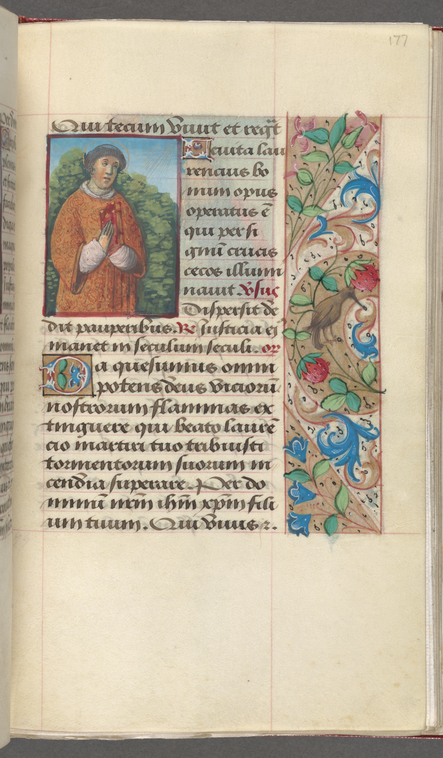 177
Qui tecum vivit et regt
Levita lau
rencius bo
num opus
operatus ē
qui per si
gnū crucis
cecos illumi
navit Vsus
Dispersit de
dit pauperibus. Re Justicia ei9
manet in seculum seculi. or
Da quesumus omni
potens deus viciorū
nostrorum flammas ex
tinguere qui beato laurē
cio martiri tuo tribuisti
tormentorum suorum in
cendia superare. Per do
minū nrm ihm xpm fili
um tuum. Qui vivis 2.